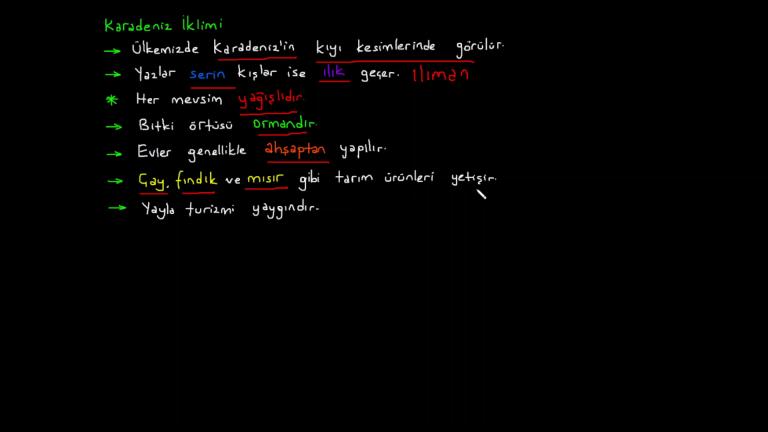 Karadeniz İklimi
→ Ülkemizde Karadeniz'in kıyı kesimlerinde görülür.
→ Yazlar serin kışlar ise ılık geçer. ılıman
* Her mevsim yağışlıdır.
→ Bitki örtüsü ormandır.
→ Evler genellikle ahşaptan yapılır.
→ Çay, fındık ve mısır gibi tarım ürünleri yetişir.
→ Yayla turizmi yaygındır.